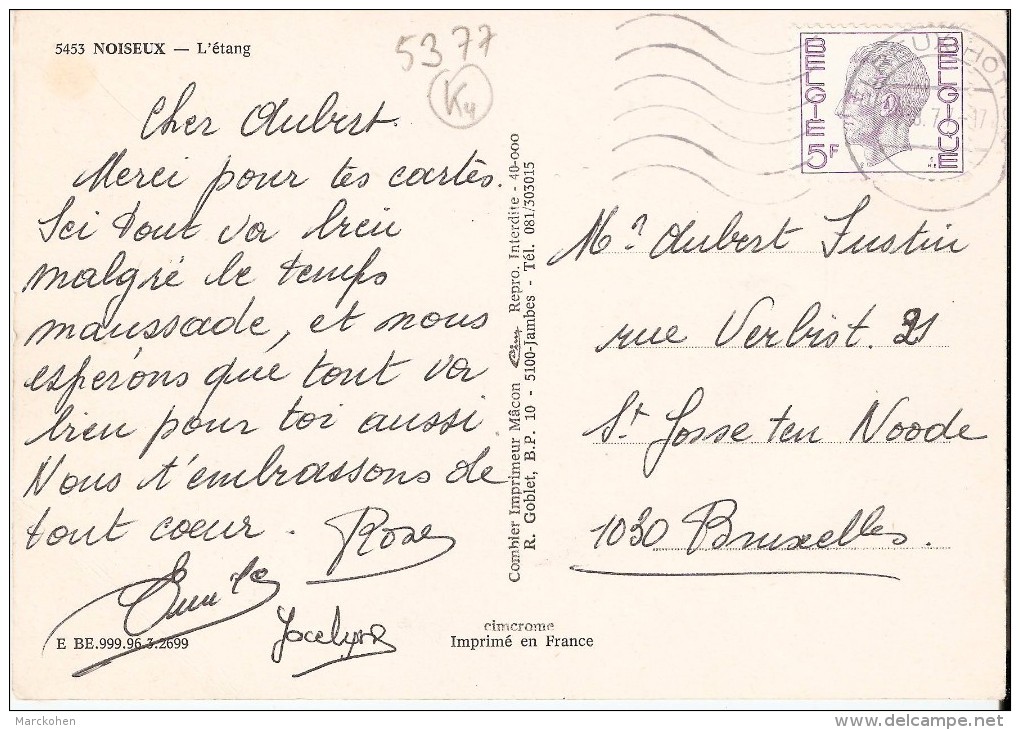 5453 NOISEUX — L'étang
5377
K4
Cher Aubert.
Merci pour tes cartes.
Ici tout va bien
malgré le temps
maussade, et nous
espérons que tout va
bien pour toi aussi
Nous t'embrassons de
tout coeur.
Rose
Jocelyne
E BE.999.96.3.2699
Combier Imprimeur Mâcon Cim Repro. Interdite - 40-000
R. Goblet, B.P. 10 - 5100-Jambes - Tél. 081/303015
cimcrome
Imprimé en France
BELGIE 5F
BELGIQUE
Mr Aubert Justin
rue Verbist. 21
St Josse ten Noode
1030 Bruxelles.
Marckohen
delcampe.net